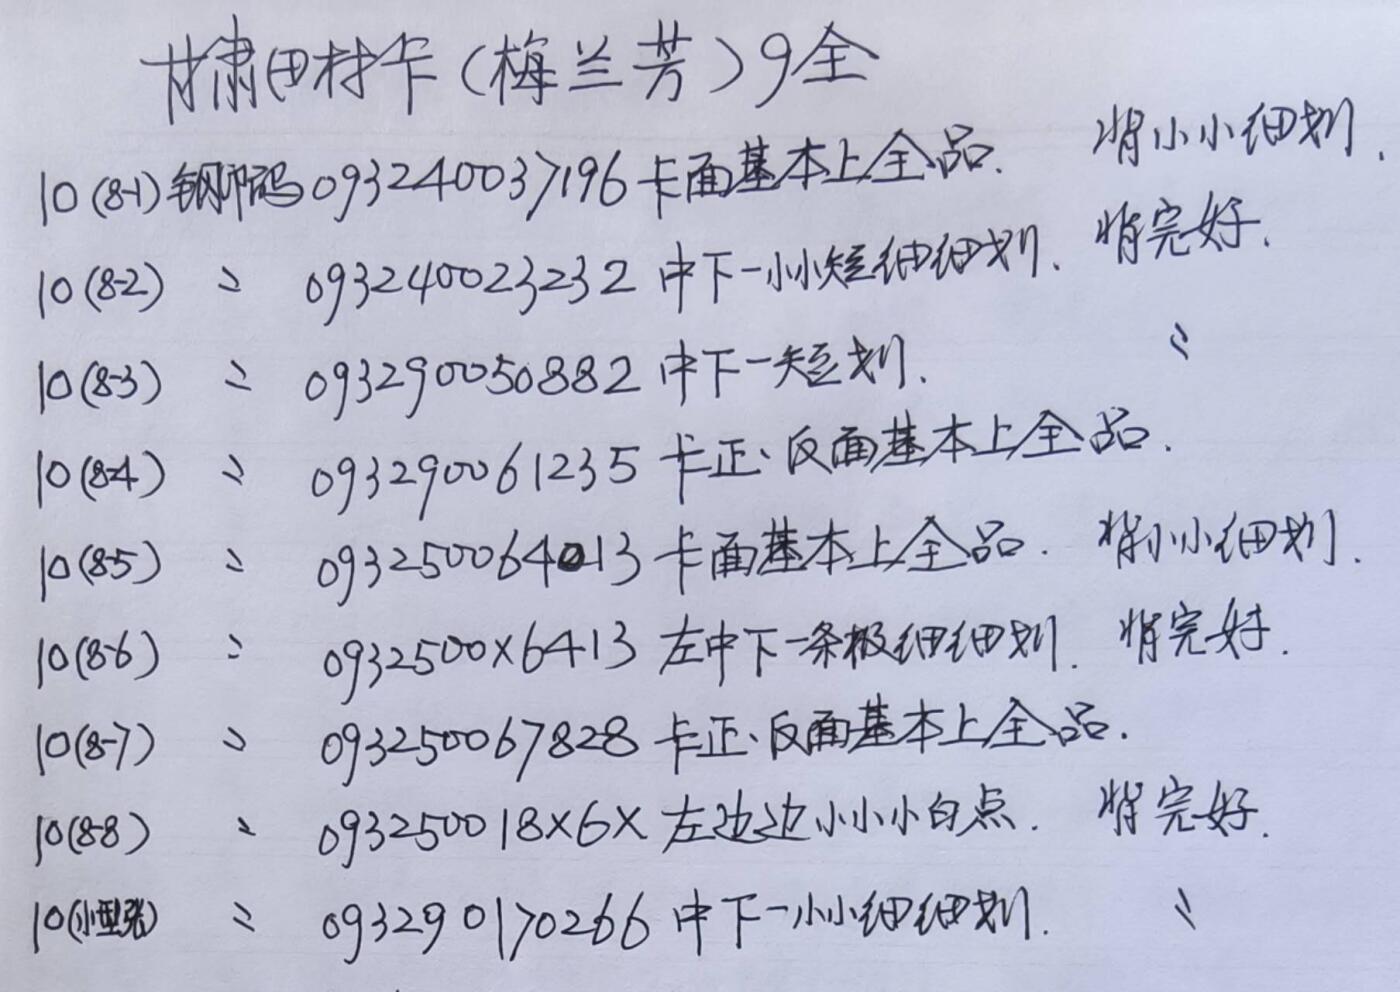 甘肃田村卡（梅兰芳）9全
10(8-1)钢印码093240037196卡面基本上全品.背小小细划.
10(8-2) 〃 093240023232中下一小小短细细划.背完好.
10(8-3) 〃 093290050882中下一短划. 〃
10(8-4) 〃 093290061235卡正、反面基本上全品.
10(8-5) 〃 093250064013卡面基本上全品.背小小细划.
10(8-6) 〃 0932500X6413左中下一条极细细划.背完好.
10(8-7) 〃 093250067828卡正、反面基本上全品.
10(8-8) 〃 093250018X6X左边边小小小白点.背完好.
10(小型张) 〃 093290170266中下一小小细细划. 〃